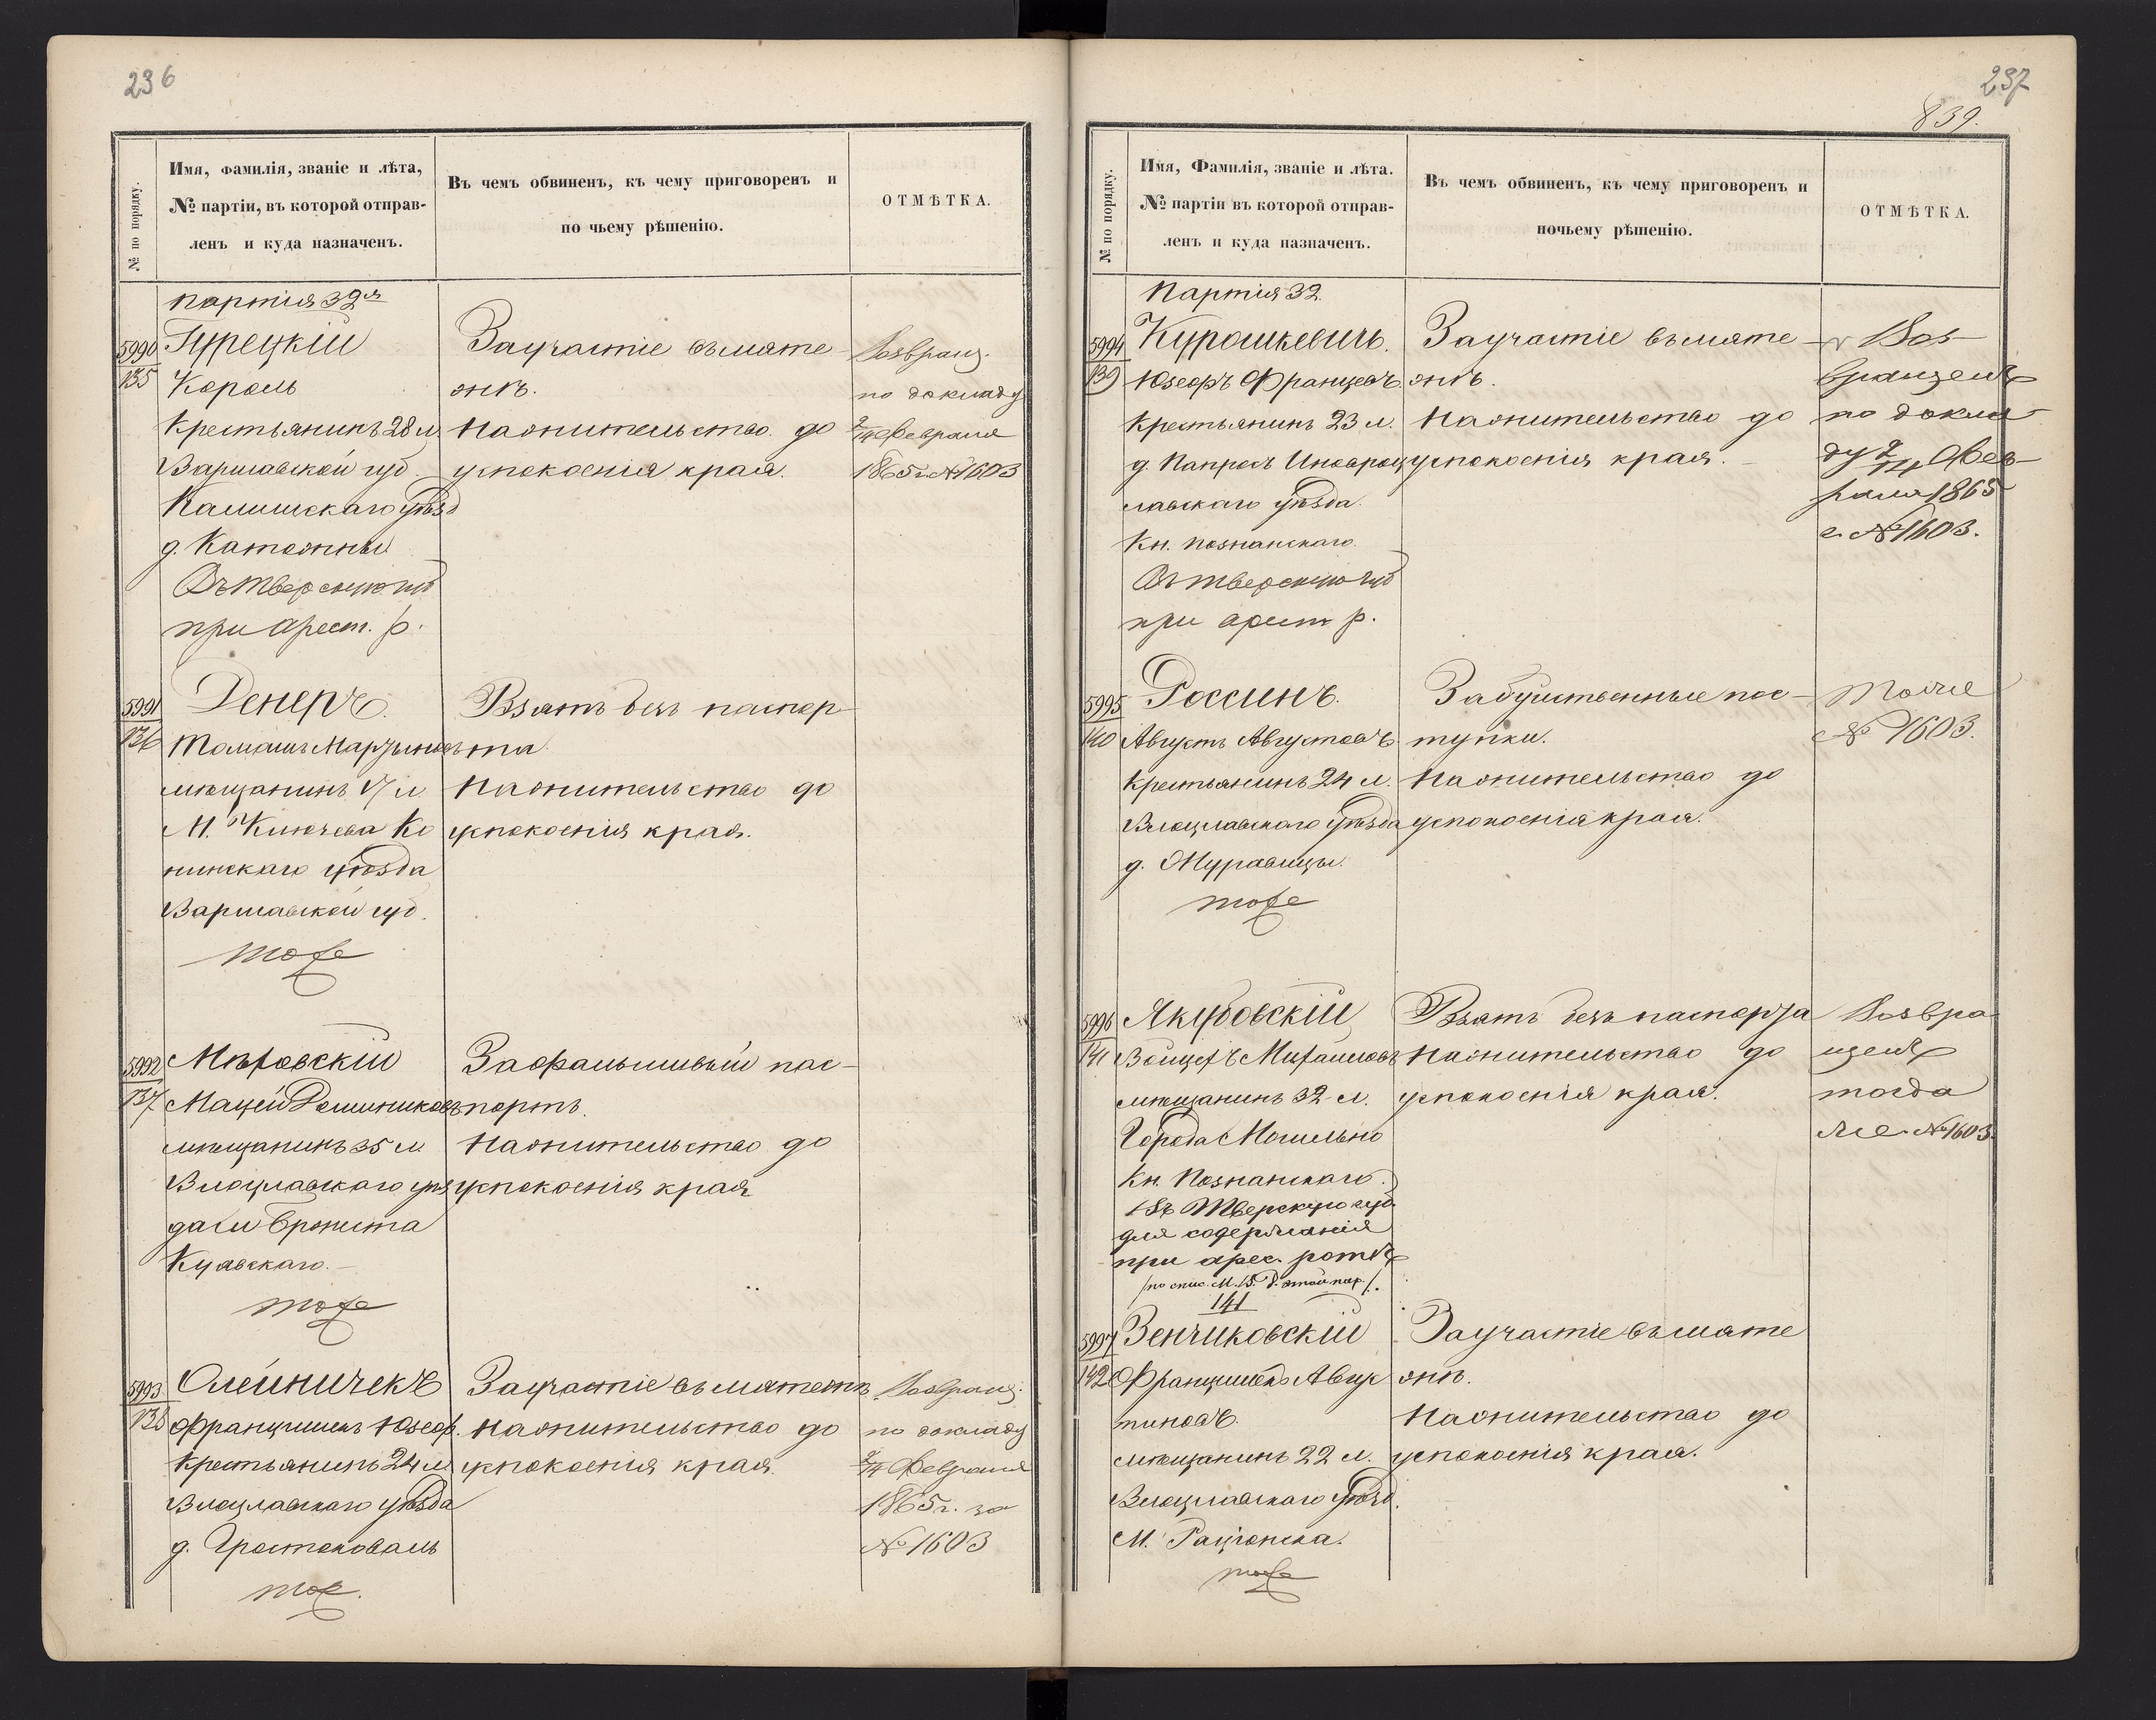 236
№ по порядку.
Имя, фамилія, званіе и лѣта,
№ партіи, въ которой отправ-
ленъ и куда назначенъ.
Въ чемъ обвиненъ, къ чему приговоренъ и
по чьему рѣшенію.
ОТМѢТКА.
партія 32я
5990
135
Турецкій
Король
Крестьянинъ 28 л
Варшавской губ.
Калишскаго уѣзд
д. Катожны
Въ Тверскую губ
при Арест. р.
За участіе въ мяте
жѣ.
На жительство до
успокоенія края.
Возвращ.
по докладу
2/14 Февраля
1865 г. № 1603
5991
136
Денеръ.
Томашъ Марцыновъ
мѣщанинъ 17 л
М. Ключева Ко
нинскаго уѣзда
Варшавской губ.
тоже
Взятъ безъ паспор
та.
На жительство до
успокоенія края.
5992
137
Мѣховскій
Мацей Доминиковъ
мѣщанинъ 35 л
Влоцлавскаго уѣз
да си Брожита
Куявскаго.
тоже
За фальшивый пас-
портъ.
На жительство до
успокоенія края
5993
138
Олейничекъ
Францишекъ Юзеф.
Крестьянинъ 24 л
Влоцлавскаго уѣзда
д.
тоже.
За участіе въ мятежѣ
На жительство до
успокоенія края.
Возвращ.
по докладу
2/14 Февраля
1865 г. за
№ 1603
237
839.
№ по порядку.
Имя, Фамилія, званіе и лѣта.
№ партіи въ которой отправ-
ленъ и куда назначенъ.
Въ чемъ обвиненъ, къ чему приговоренъ и
почьему рѣшенію.
ОТМѢТКА.
Партія 32.
5994
139
Курошкевичъ.
Юзефъ Францовъ.
Крестьянинъ 23 л.
д. Папросъ Иновроц
лавскаго уѣзда.
Кн. Познанскаго.
Въ Тверскую губ
при арест р.
За участіе въ мяте
жѣ.
На жительство до
успокоенія края.
Воз-
вращенъ
по докла-
ду 2/14 Фев-
раля 1865
г. № 1603.
5995
140
Россинъ.
Августъ Августовъ
Крестьянинъ 24 л.
Влоцлавскаго уѣзда
д. Муравицы.
тоже
За буйственные пос-
тупки.
На жительство до
успокоенія края.
Тоже
№ 1603.
5996
141
Якубовскій
Войцехъ Михайловъ
мѣщанинъ 32 л.
Города Могильно
Кн. Познанскаго.
Въ Тверскую губ
для содержанія
при арес. ротѣ
/по спис. М. В. Д. этой пар./.
141
Взятъ безъ паспорта
На жительство до
успокоенія края.
Возвра
щенъ
тогда
же № 1603.
5997
142
Зенчиковскій
Францишекъ Авгус
тиновъ.
мѣщанинъ 22 л.
Влоцлавскаго уѣзд.
М. Рацюнска.
тоже
За участіе въ мяте
жѣ.
На жительство до
успокоенія края.